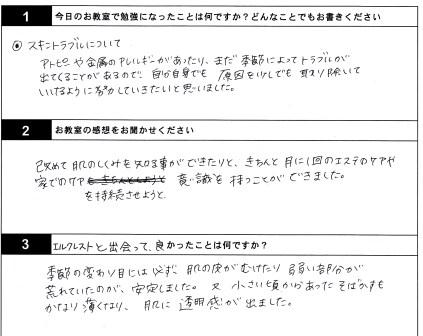 1 今日のお教室で勉強になったことは何ですか？どんなことでもお書きください
◎ スキントラブルについて
アトピーや金属のアレルギーがあったり、また季節によってトラブルが
出てくることがあるので、自分自身でも原因を少しでも取り除いて
いけるように努力していきたいと思いました。
2 お教室の感想をお聞かせください
改めて肌のしくみを知る事ができたりと、きちんと月に1回のエステのケアや
家でのケア 意識を持つことができました。
を持続させようと
3 エルクレストと出会って、良かったことは何ですか？
季節の変わり目には必ず、肌の皮がむけたり弱い部分が
荒れていたのが、安定しました。又 小さい頃からあったそばかすも
かなり薄くなり、肌に透明感が出ました。